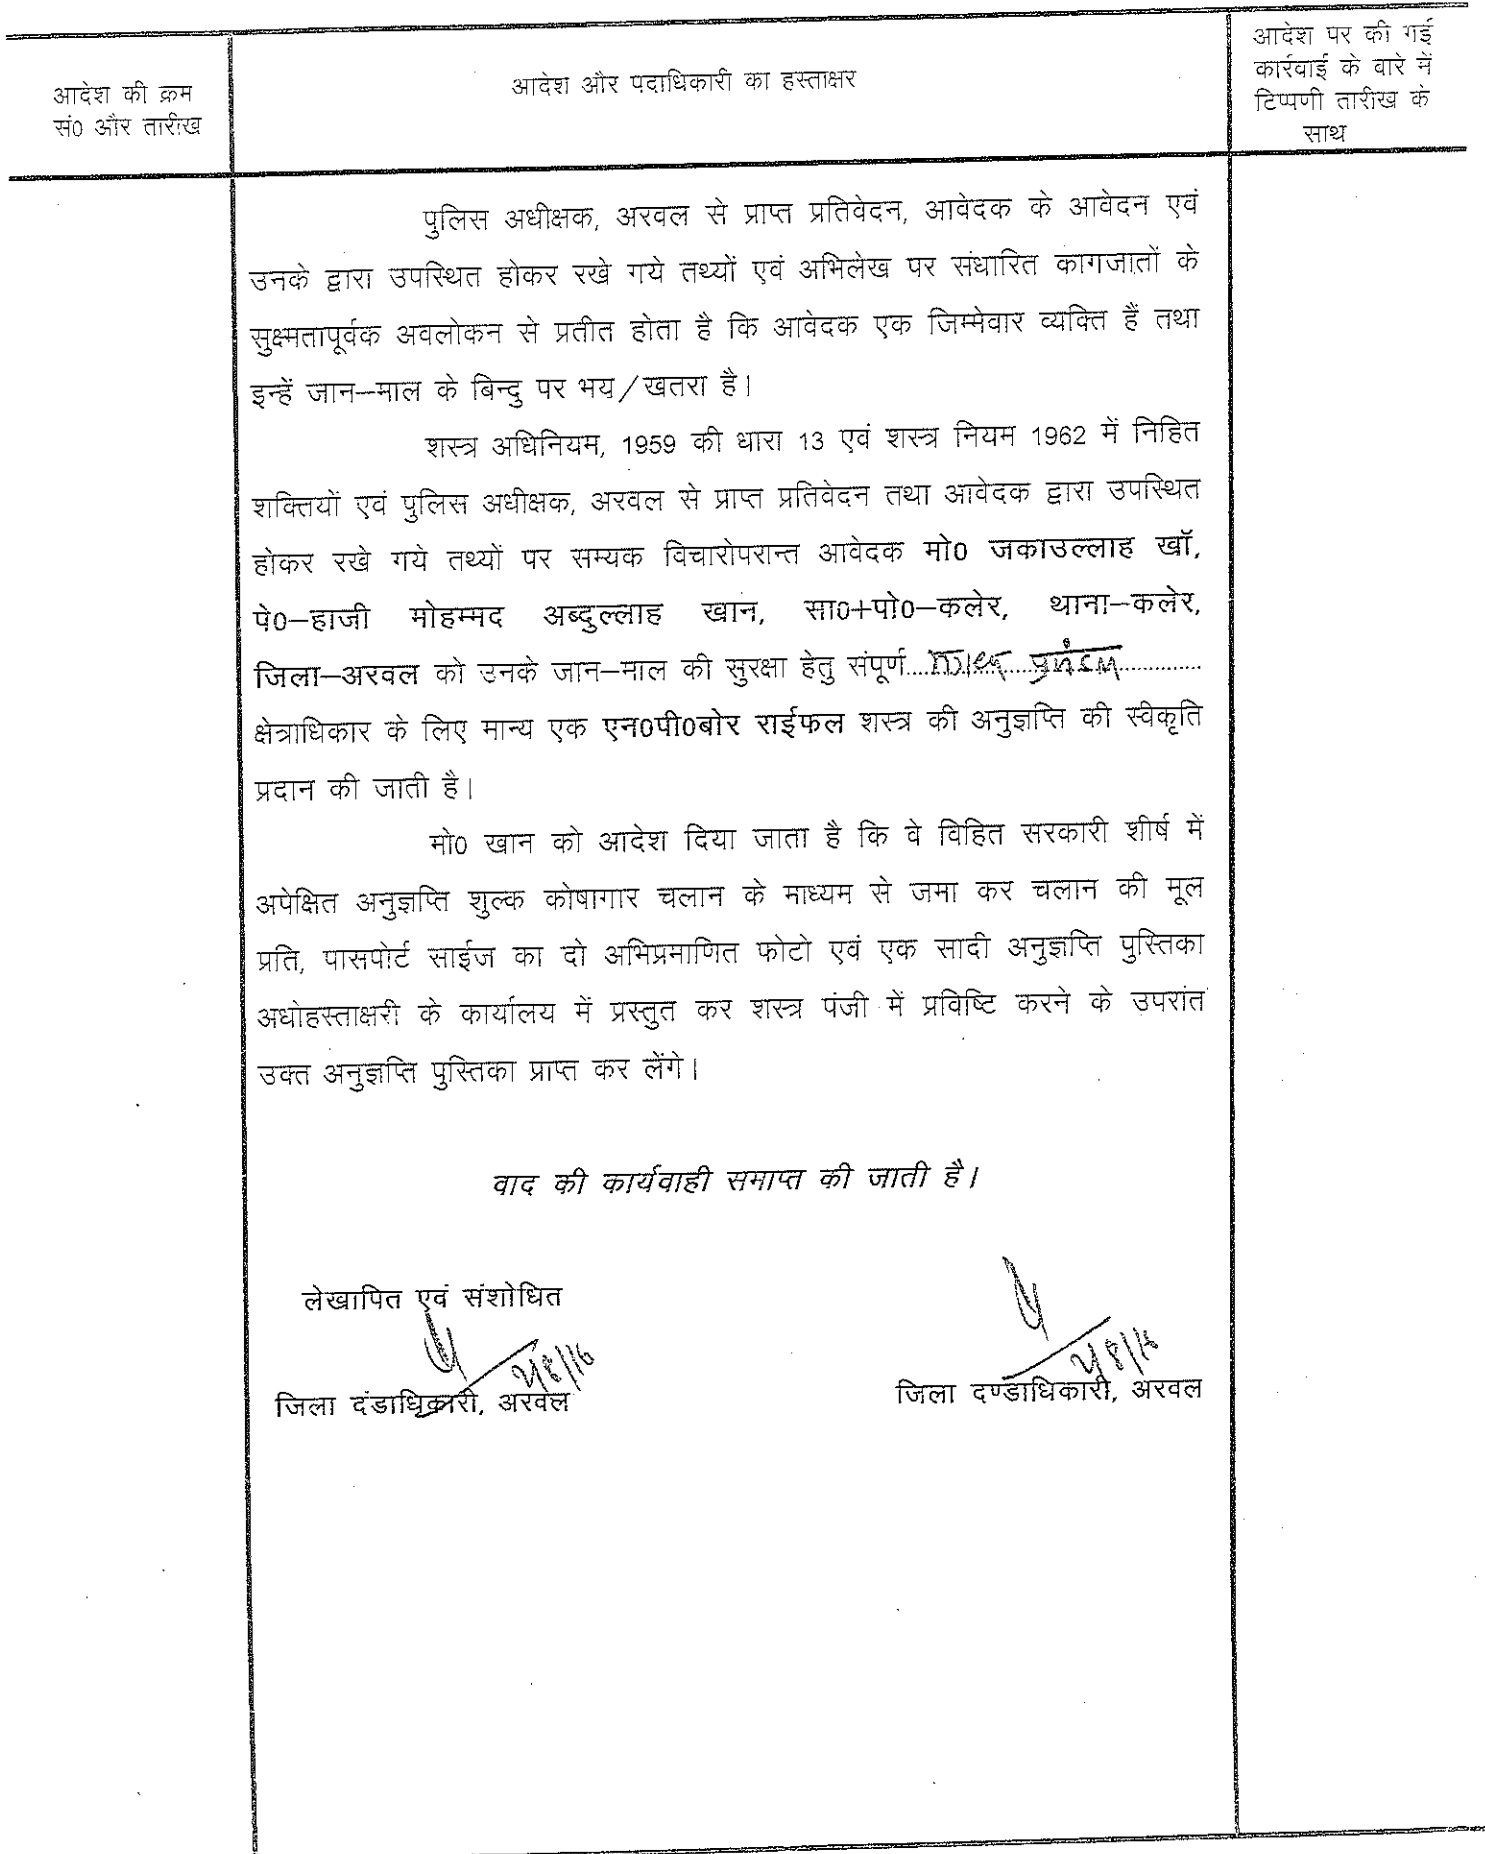 आदेश की क्रम
सं0 और तारीख
आदेश और पदाधिकारी का हस्ताक्षर
आदेश पर की गई
कार्रवाई के वारे में
टिप्पणी तारीख के
साथ
पुलिस अधीक्षक, अरवल से प्राप्त प्रतिवेदन, आवेदक के आवेदन एवं
उनके द्वारा उपस्थित होकर रखे गये तथ्यों एवं अभिलेख पर संधारित कागजातों के
सुक्ष्मतापूर्वक अवलोकन से प्रतीत होता है कि आवेदक एक जिम्मेवार व्यक्ति हैं तथा
इन्हें जान–माल के बिन्दु पर भय/खतरा है।
शस्त्र अधिनियम, 1959 की धारा 13 एवं शस्त्र नियम 1962 में निहित
शक्तियों एवं पुलिस अधीक्षक, अरवल से प्राप्त प्रतिवेदन तथा आवेदक द्वारा उपस्थित
होकर रखे गये तथ्यों पर सम्यक विचारोपरान्त आवेदक मो0 जकाउल्लाह खॉ,
पे0–हाजी मोहम्मद अब्दुल्लाह खान, सा0+पो0–कलेर, थाना–कलेर,
जिला–अरवल को उनके जान–माल की सुरक्षा हेतु संपूर्ण
क्षेत्राधिकार के लिए मान्य एक एन0पी0बोर राईफल शस्त्र की अनुज्ञप्ति की स्वीकृति
प्रदान की जाती है।
मो0 खान को आदेश दिया जाता है कि वे विहित सरकारी शीर्ष में
अपेक्षित अनुज्ञप्ति शुल्क कोषागार चलान के माध्यम से जमा कर चलान की मूल
प्रति, पासपोर्ट साईज का दो अभिप्रमाणित फोटो एवं एक सादी अनुज्ञप्ति पुस्तिका
अधोहस्ताक्षरी के कार्यालय में प्रस्तुत कर शस्त्र पंजी में प्रविष्टि करने के उपरांत
उक्त अनुज्ञप्ति पुस्तिका प्राप्त कर लेंगे।
वाद की कार्यवाही समाप्त की जाती है।
लेखापित एवं संशोधित
जिला दंडाधिकारी, अरवल
जिला दण्डाधिकारी, अरवल